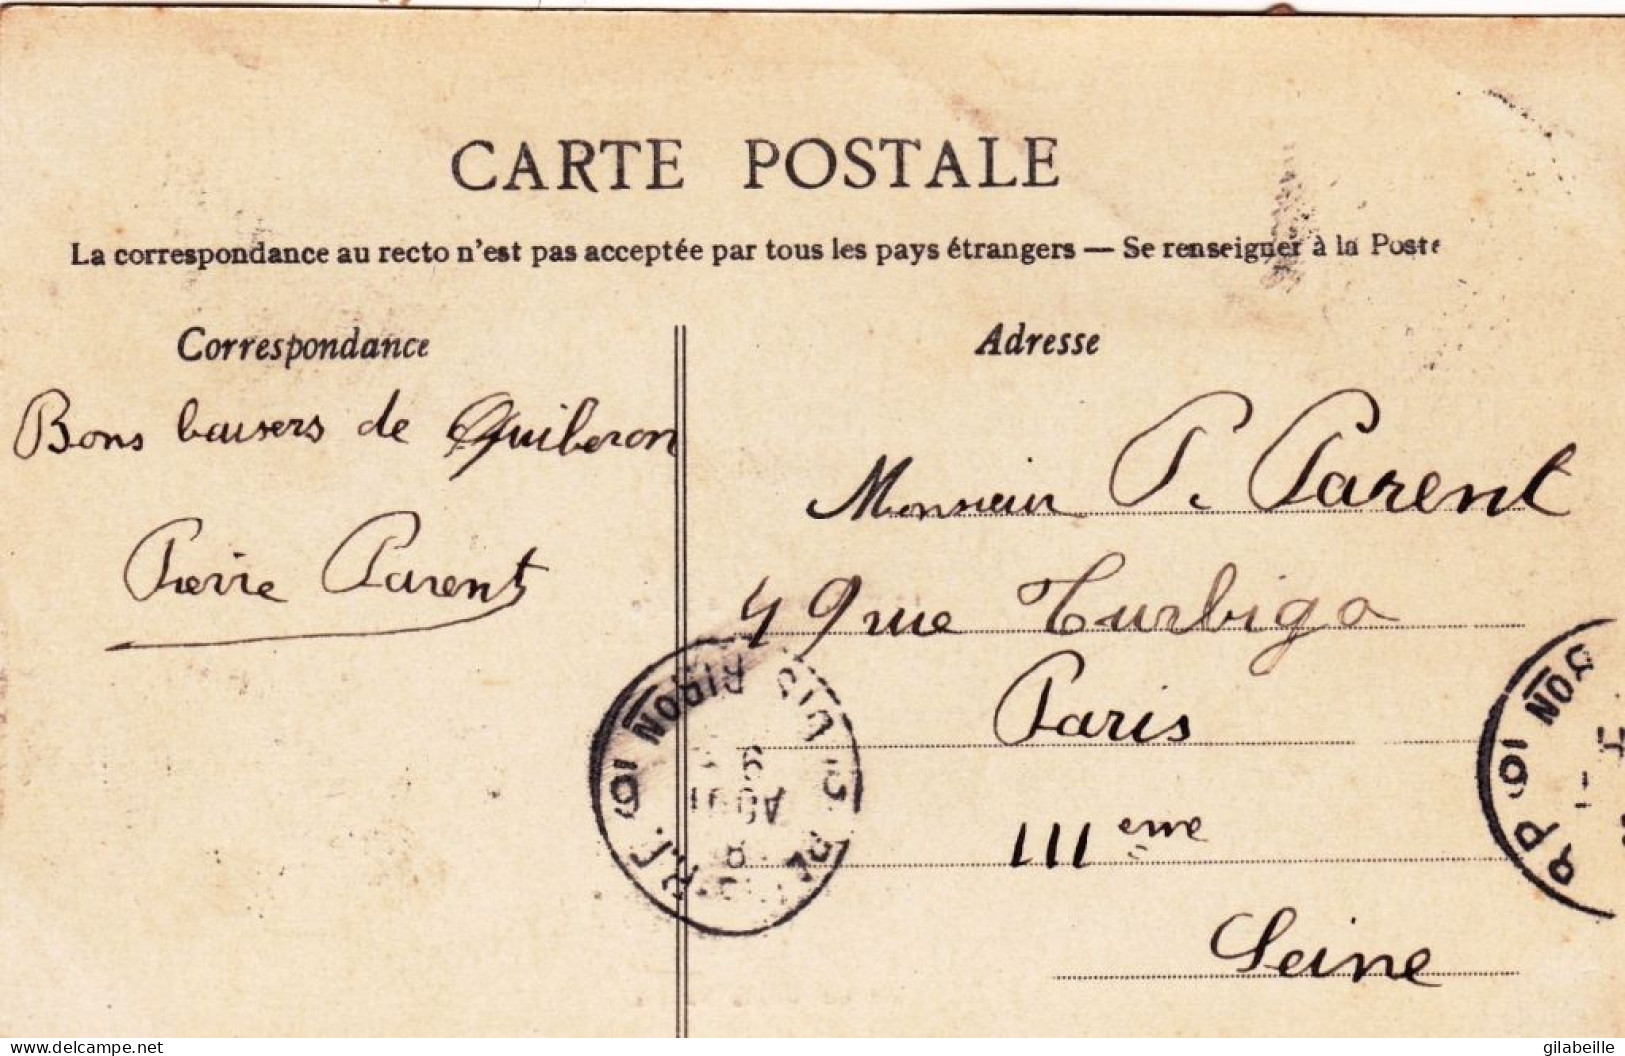 CARTE POSTALE
La correspondance au recto n'est pas acceptée par tous les pays étrangers — Se renseigner à la Poste
Correspondance
Bons baisers de Quiberon
Pierre Parent
Adresse
Monsieur P. Parent
49 rue Turbigo
Paris
III eme
Seine
delcampe.net
gilabeille